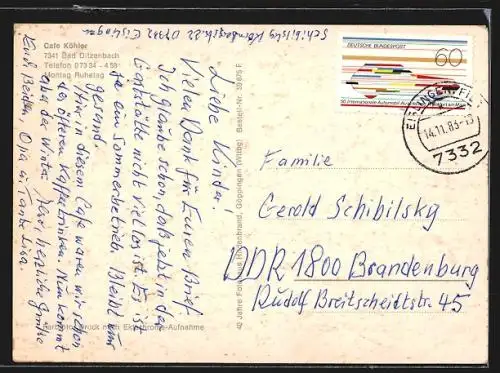 Cafe Köhler
7341 Bad Ditzenbach
Telefon 07334-459
Montag Ruhetag
Schibilsky 7332 Eislingen
Liebe Kinder!
Vielen Dank für Euren Brief
Ich glaube schon daß jetzt in der
Gaststätte nicht viel los ist. Es ist
ja ein Sommerbetrieb. Bleibt nur
gesund.
Hier in diesem Cafe waren wir schon
des öfteren Kaffeetrinken. Nun kommt
aber der Winter. Aber herzliche Grüße
Euch Beiden Opa u. Tante Lisa
40 Jahre Foto Hildenbrand, Göppingen (Württbg.) Bestell-Nr. 3975 F
nach Ektachrome-Aufnahme
DEUTSCHE BUNDESPOST
60
50. Internationale Automobil-Ausstellung Frankfurt am Main
EISLINGEN, FILS
14.11.83-13
7332
Familie
Gerold Schibilsky
DDR 1800 Brandenburg
Rudolf Breitscheidtstr. 45